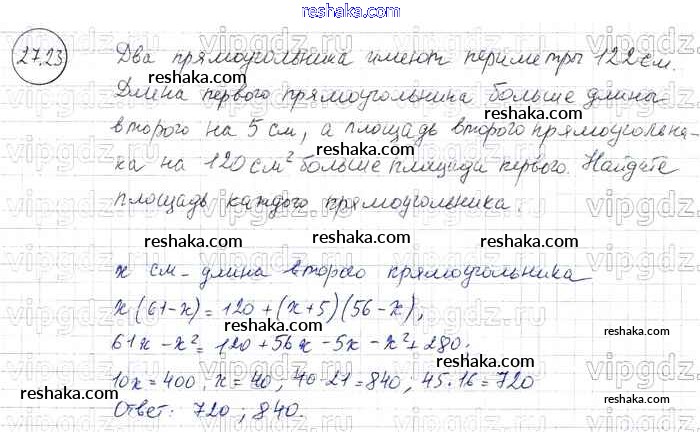 reshaka.com
27.23
Два прямоугольника имеют периметры 122 см.
reshaka.com
Длина первого прямоугольника больше длины
второго на 5 см, а площадь второго прямоугольни-
reshaka.com reshaka.com
ка на 120 см² больше площади первого. Найдите
площадь каждого прямоугольника.
reshaka.com reshaka.com
x см - длина второго прямоугольника
x(61-x)=120+(x+5)(56-x);
reshaka.com reshaka.com
61x-x²=120+56x-5x-x²+280;
reshaka.com reshaka.com
10x=400; x=40; 40·21=840; 45·16=720
Ответ: 720; 840.
reshaka.com reshaka.com